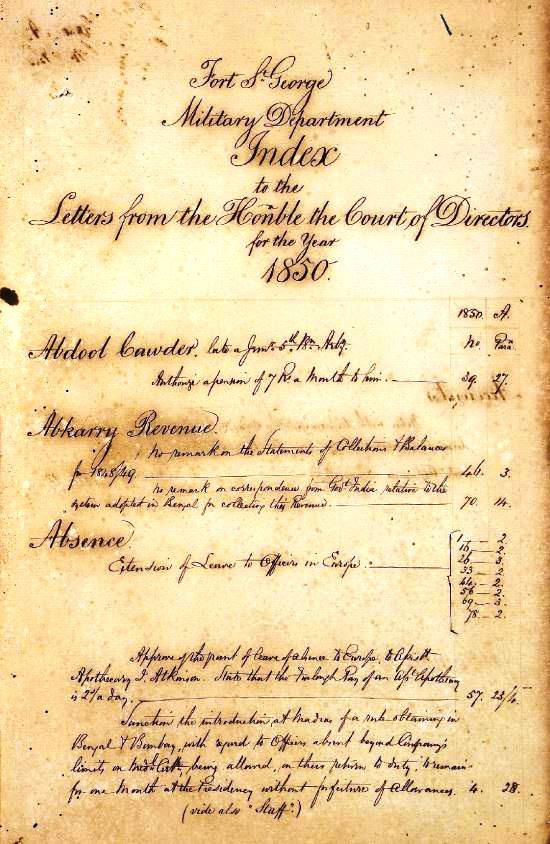 Fort St. George
Military Department
Index
to the
Letters from the Honble the Court of Directors
for the Year
1850.
1850. A.
No Para
Abdool Cawder, late a 5th
Authorize a pension of 7 Rs. a Month to him. 39. 27.
Abkarry Revenue.
No remark on the Statements of Collections & Balances
for 1848/49 46. 3.
No remark on correspondence from Govt. India relative to the
system adopted in Bengal for collecting this Revenue. 70. 14.
Absence.
Extension of Leave to Officers in Europe.
1 — 2.
2.
26 — 3.
33 — 2
44 — 2.
56 — 2.
69 — 3.
78 — 2.
Approve of the grant of leave of absence to Europe, to Asstt.
Apothecary J. Atkinson. States that the Furlough Pay of an Apothecary
is 2/ a day. 57.
Sanction the introduction, at Madras of a rule obtaining in
Bengal & Bombay, with regard to Officers absent beyond Company's
limits on being allowed, on their return to duty, to remain
for one Month at the Presidency without forfeiture of Allowances. 4. 28.
(vide also "Staff".)